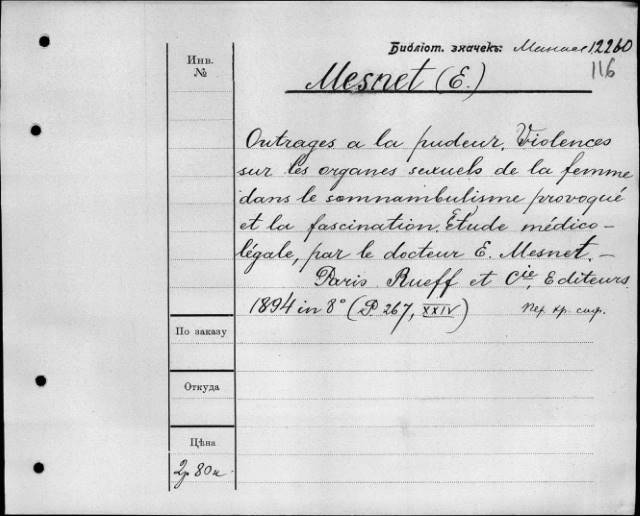 Библіот. значекъ: 12260
116
Инв.
№
Mesnet (E.)
Outrages a la pudeur. Violences
sur les organes sexuels de la femme
dans le somnambulisme provoqué
et la fascination. Etude médico-
légale, par le docteur E. Mesnet. —
Paris. Rueff et Cie, Editeurs.
1894 in 8° (P 267, XXIV)
По заказу
Откуда
Цѣна
2р 80к.